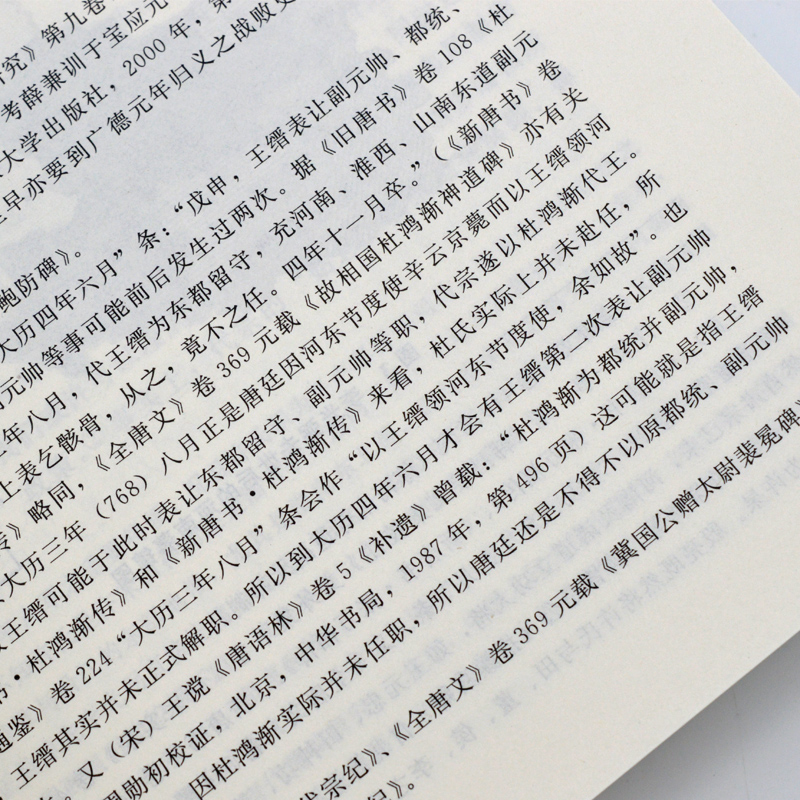 究》第九卷
考薛兼训于宝应元
大学出版社，2000 年，第
早亦要到广德元年归义之战败
鲍防碑》。
大历四年六月”条：“戊申，王缙表让副元帅、都统、
元帅等事可能前后发生过两次。据《旧唐书》卷 108《杜
年八月，代王缙为东都留守，充河南、淮西、山南东道副元
上表乞骸骨，从之，竟不之任。四年十一月卒。”（《新唐书》卷
传》略同，《全唐文》卷 369 元载《故相国杜鸿渐神道碑》亦有关
大历三年（768）八月正是唐廷因河东节度使辛云京薨而以王缙领河
王缙可能于此时表让东都留守、副元帅等职，代宗遂以杜鸿渐代王。
书·杜鸿渐传》和《新唐书·杜鸿渐传》来看，杜氏实际上并未赴任，所
通鉴》卷 224“大历三年八月”条会作“以王缙领河东节度使，余如故”。也
王缙其实并未正式解职。所以到大历四年六月才会有王缙第二次表让副元帅
。又（宋）王谠《唐语林》卷 5《补遗》曾载：“杜鸿渐为都统并副元帅，
周勋初校证，北京，中华书局，1987 年，第 496 页）这可能就是指王缙
因杜鸿渐实际并未任职，所以唐廷还是不得不以原都统、副元帅
代宗纪》、《全唐文》卷 369 元载《冀国公赠太尉裴冕碑》
纪》。